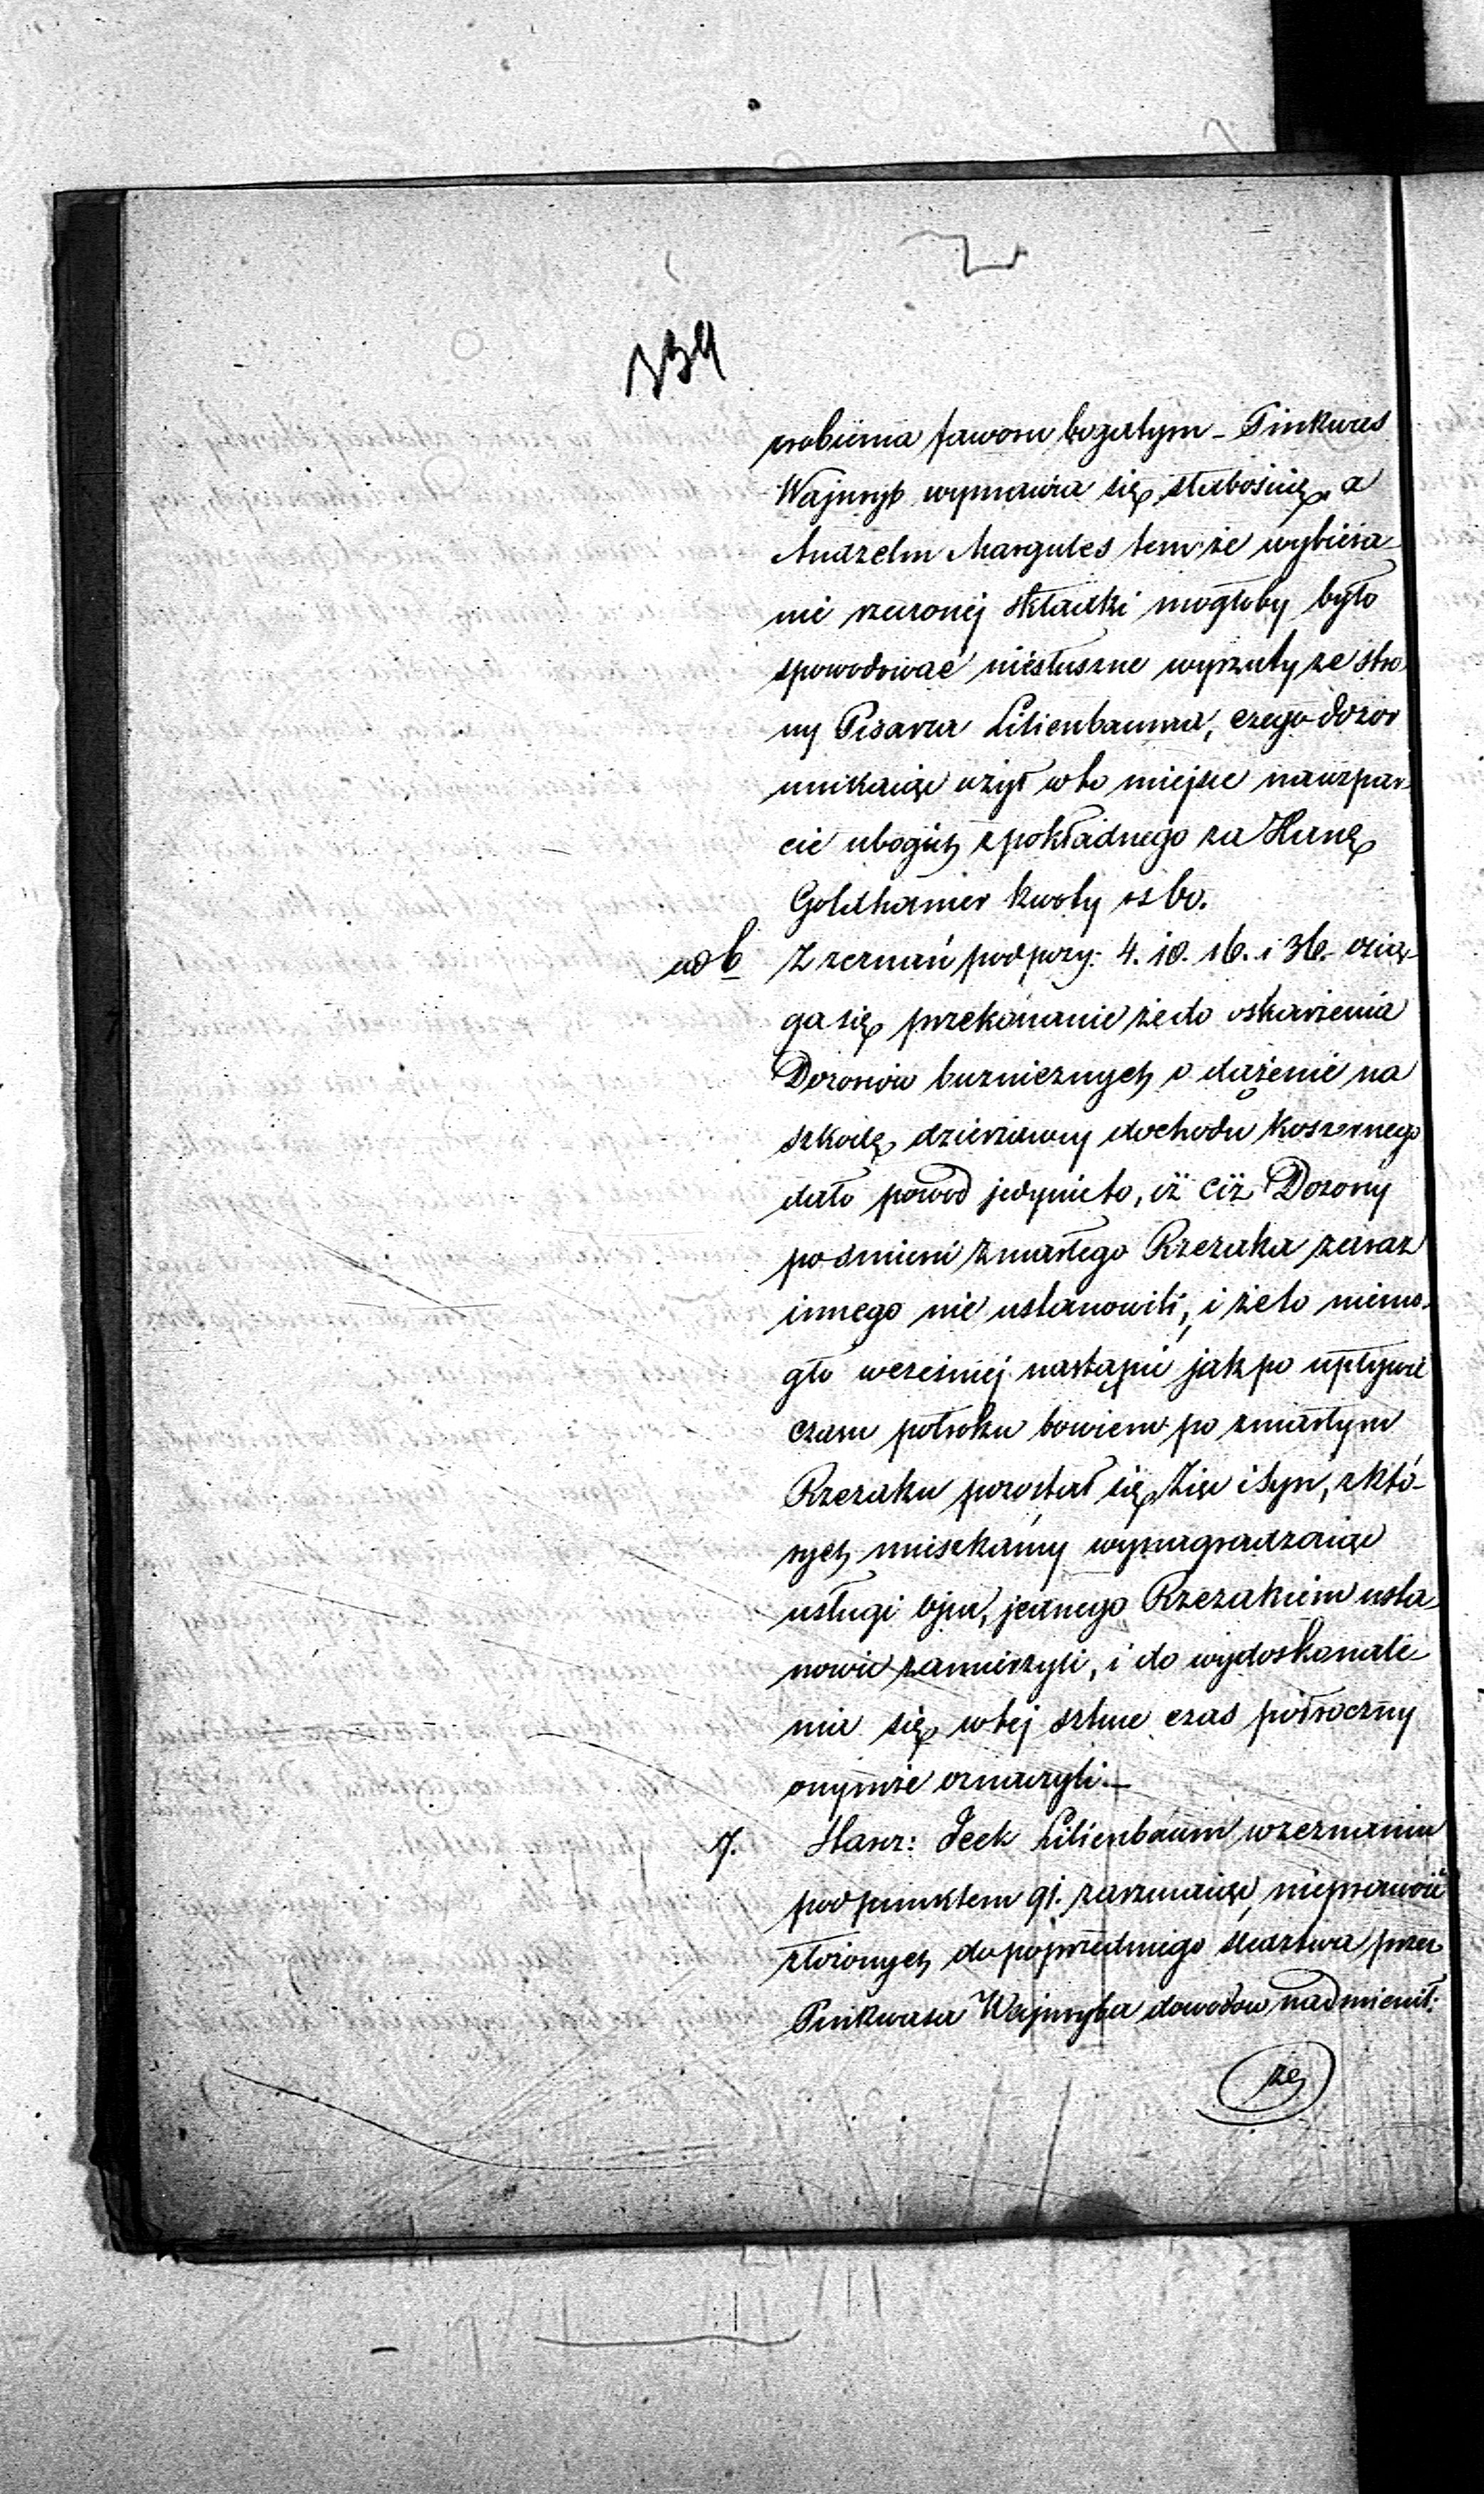 339
robienia faworu bogatym – Pinkwas
Wajnryb wymawia się słabością, a
Andzelm Margules tem że wybiera-
nie rzeczonej składki mogłoby było
spowodować niesłuszne wyrzuty ze stro-
ny Pisarza Lilienbauma, czego dozor
unikaiąc użył w to miejsce na wspar-
cie ubogich z pokładnego za Hanę
Goldhamer kwoty
ad 6 Z zeznań pod poz: 4. 10. 16. i 36. osią-
ga się przekonanie że do oskarżenia
Dozorów bużnicznych o dążenie na
szkodę dzierżawy dochodu koszernego
dało powod jedynie to, iż ciż Dozorcy
po śmierci zmarłego Rzezaka zaraz
innego nie ustanowili, i że to niemo-
gło wcześniej nastąpić jak po upływie
czasu półroku bowiem po zmarłym
Rzezaku pozostał się Zięć i Syn, z któ-
rych mieszkańcy wynagradzaiąc
usługi ojca, jednego Rzezakiem usta-
nowić zamierzyli, i do wydoskonale-
nia się w tej sztuce czas półroczny
onymże oznaczyli. –
7. Starz: Icek Lilienbaum w zeznaniu
pod punktem 91. zarzucaiąc nieprawość
złożonych do poprzedniego śledztwa przez
Pinkwasa Wajnryba dowodów nadmienił:
że